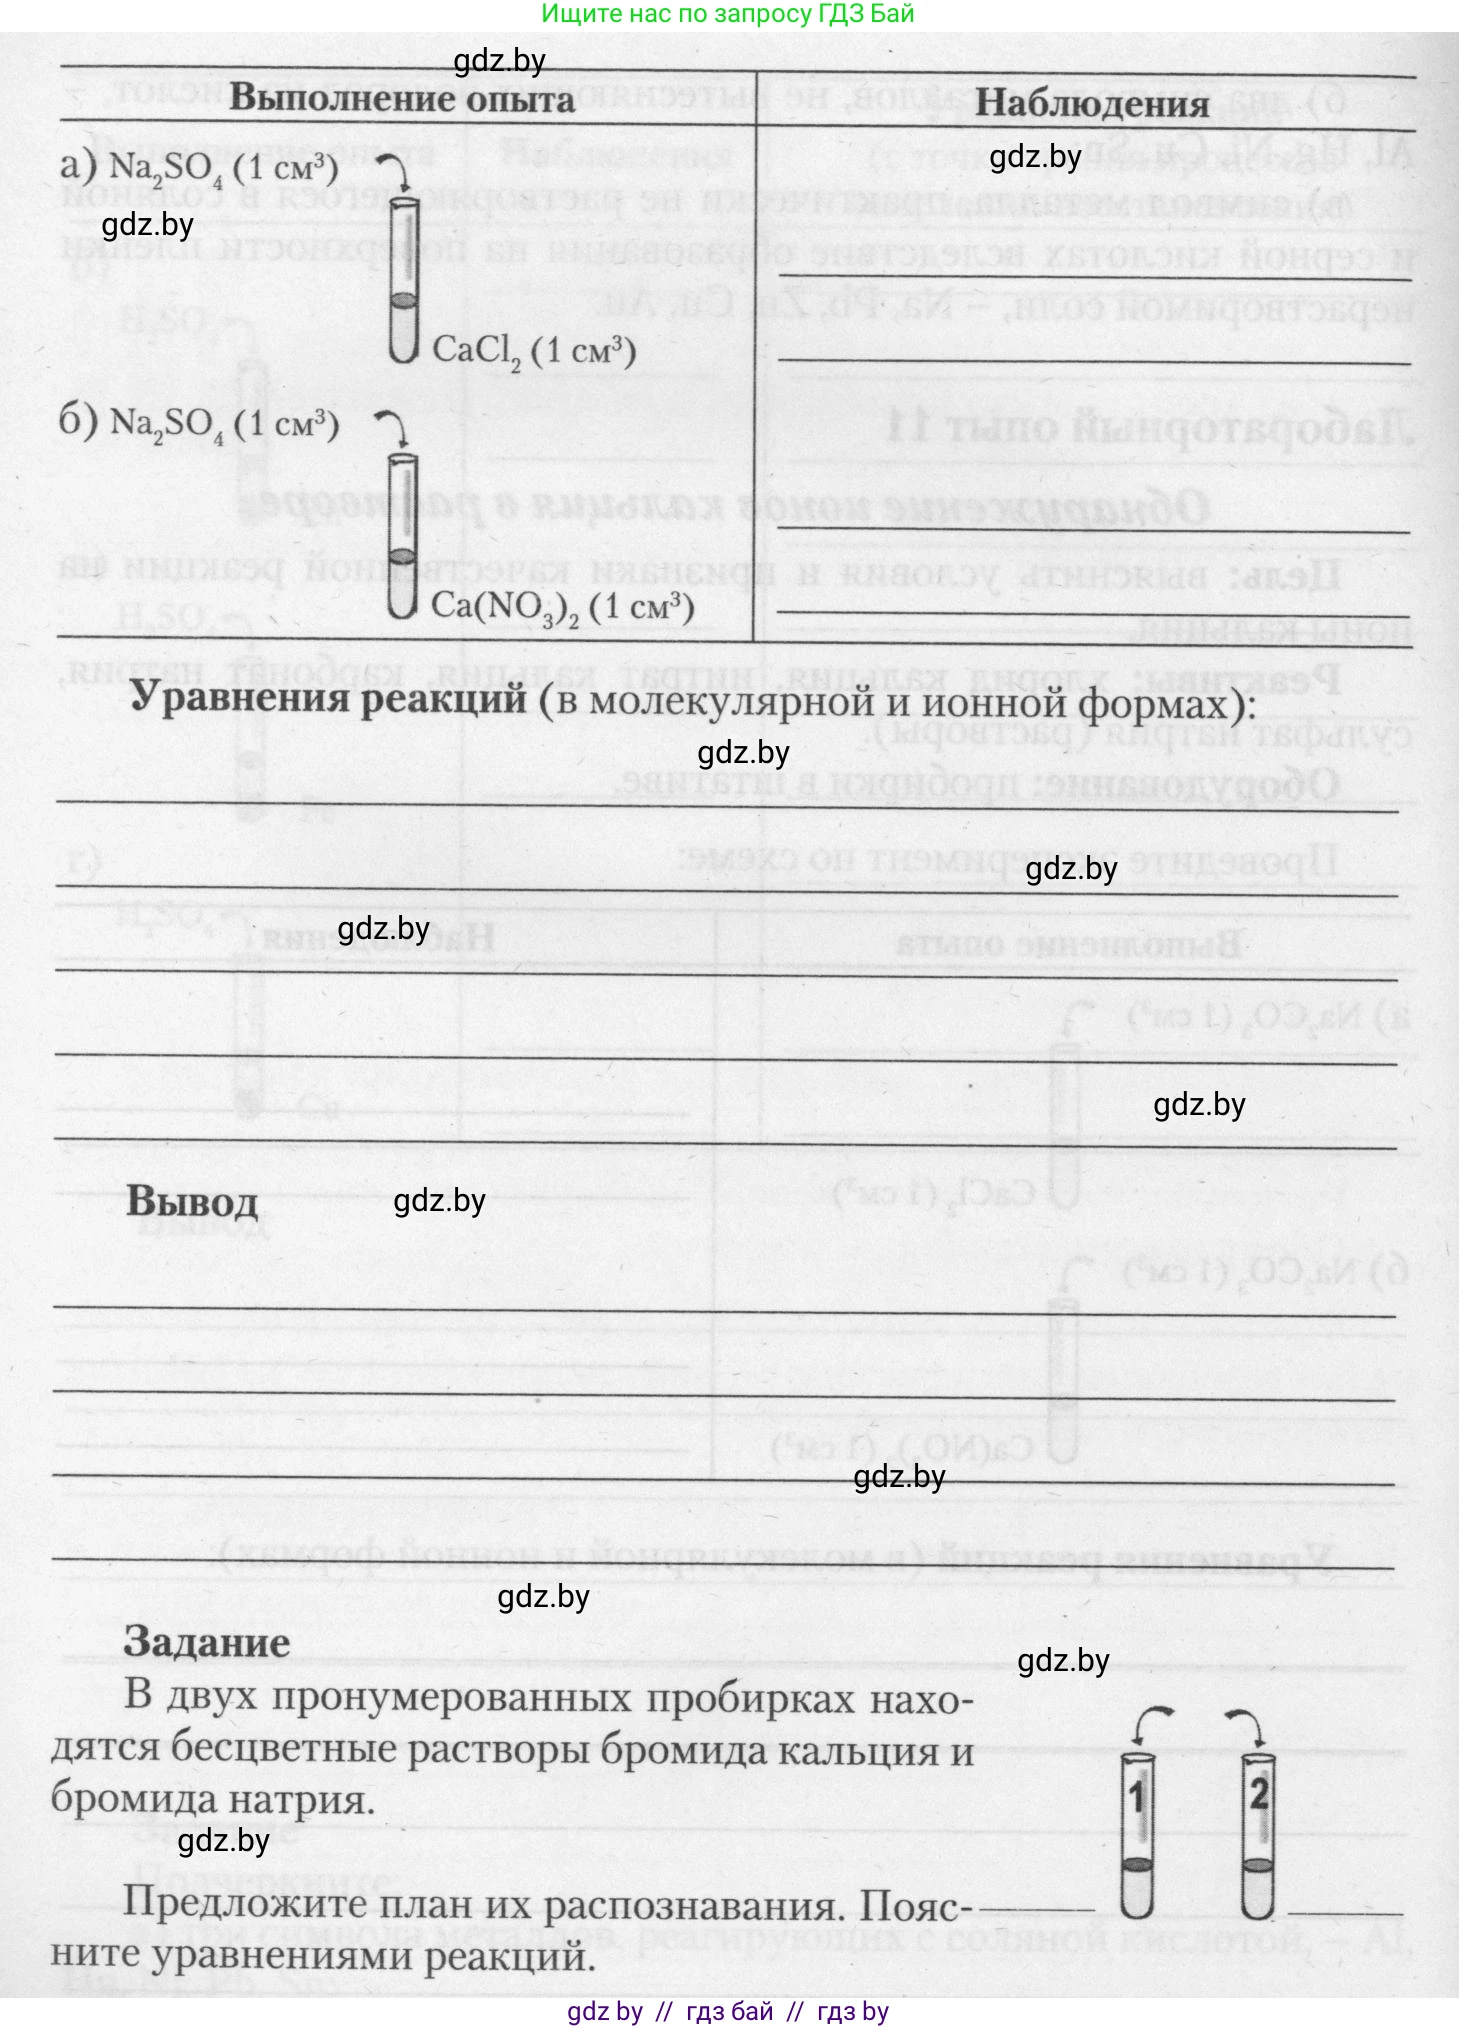 Ищите нас по запросу ГДЗ Бай
gdz.by
Выполнение опыта
Наблюдения
gdz.by
а) Na₂SO₄ (1 см³)
gdz.by
CaCl₂ (1 см³)
б) Na₂SO₄ (1 см³)
Ca(NO₃)₂ (1 см³)
Уравнения реакций (в молекулярной и ионной формах):
gdz.by
gdz.by
gdz.by
gdz.by
Вывод
gdz.by
gdz.by
gdz.by
Задание
gdz.by
В двух пронумерованных пробирках нахо-
дятся бесцветные растворы бромида кальция и
бромида натрия.
1 2
gdz.by
Предложите план их распознавания. Пояс-
ните уравнениями реакций.
gdz by // гдз бай // гдз by